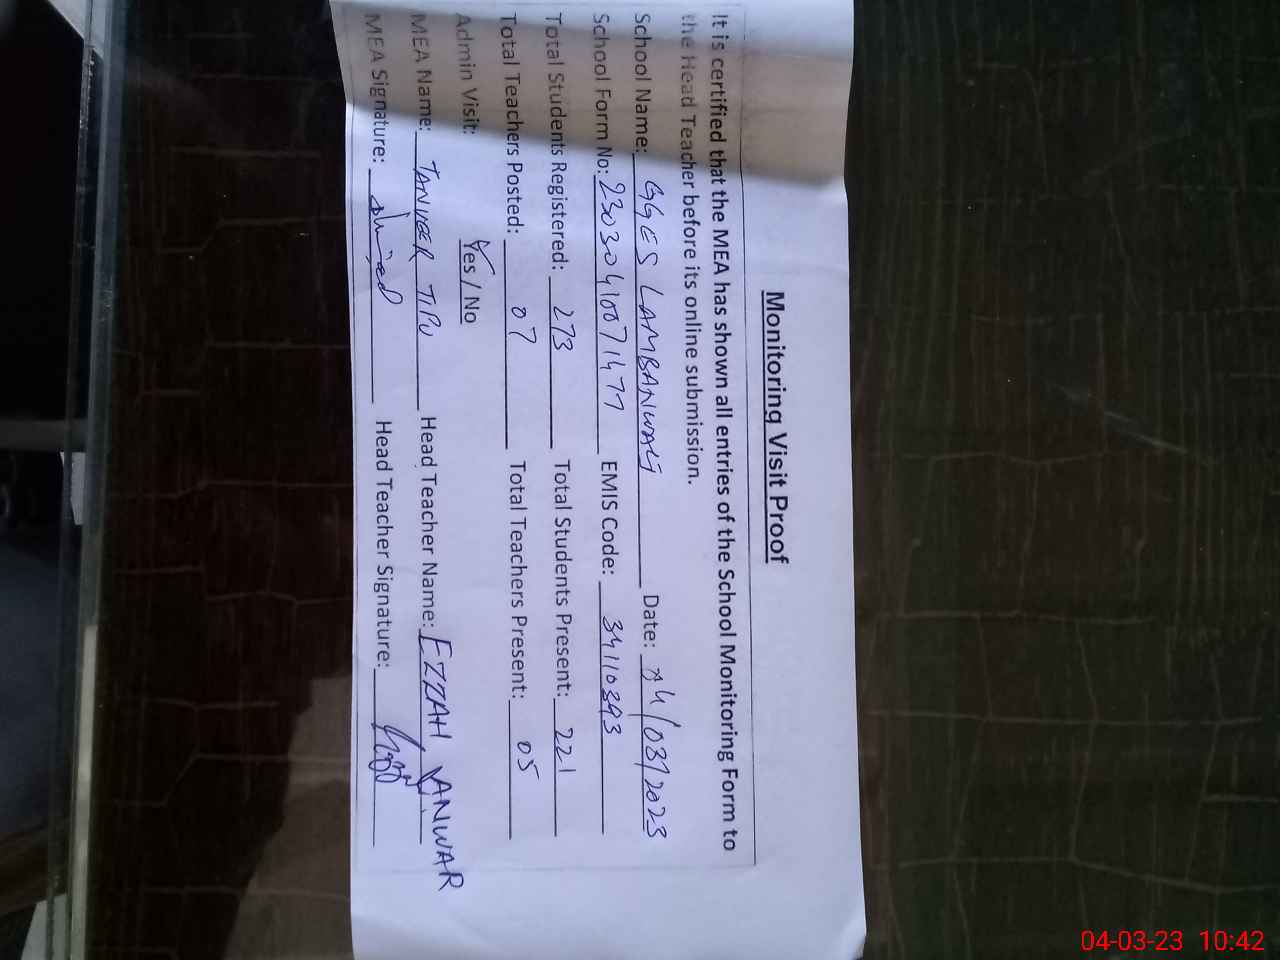 Monitoring Visit Proof
It is certified that the MEA has shown all entries of the School Monitoring Form to
the Head Teacher before its online submission.
School Name: GGES LAMBANWALI Date: 04/03/2023
School Form No: 23030410071477 EMIS Code: 34110393
Total Students Registered: 273 Total Students Present: 221
Total Teachers Posted: 07 Total Teachers Present: 05
Admin Visit: Yes / No
MEA Name: TANVEER TIPU Head Teacher Name: EZZAH ANWAR
MEA Signature: Head Teacher Signature:
04-03-23 10:42